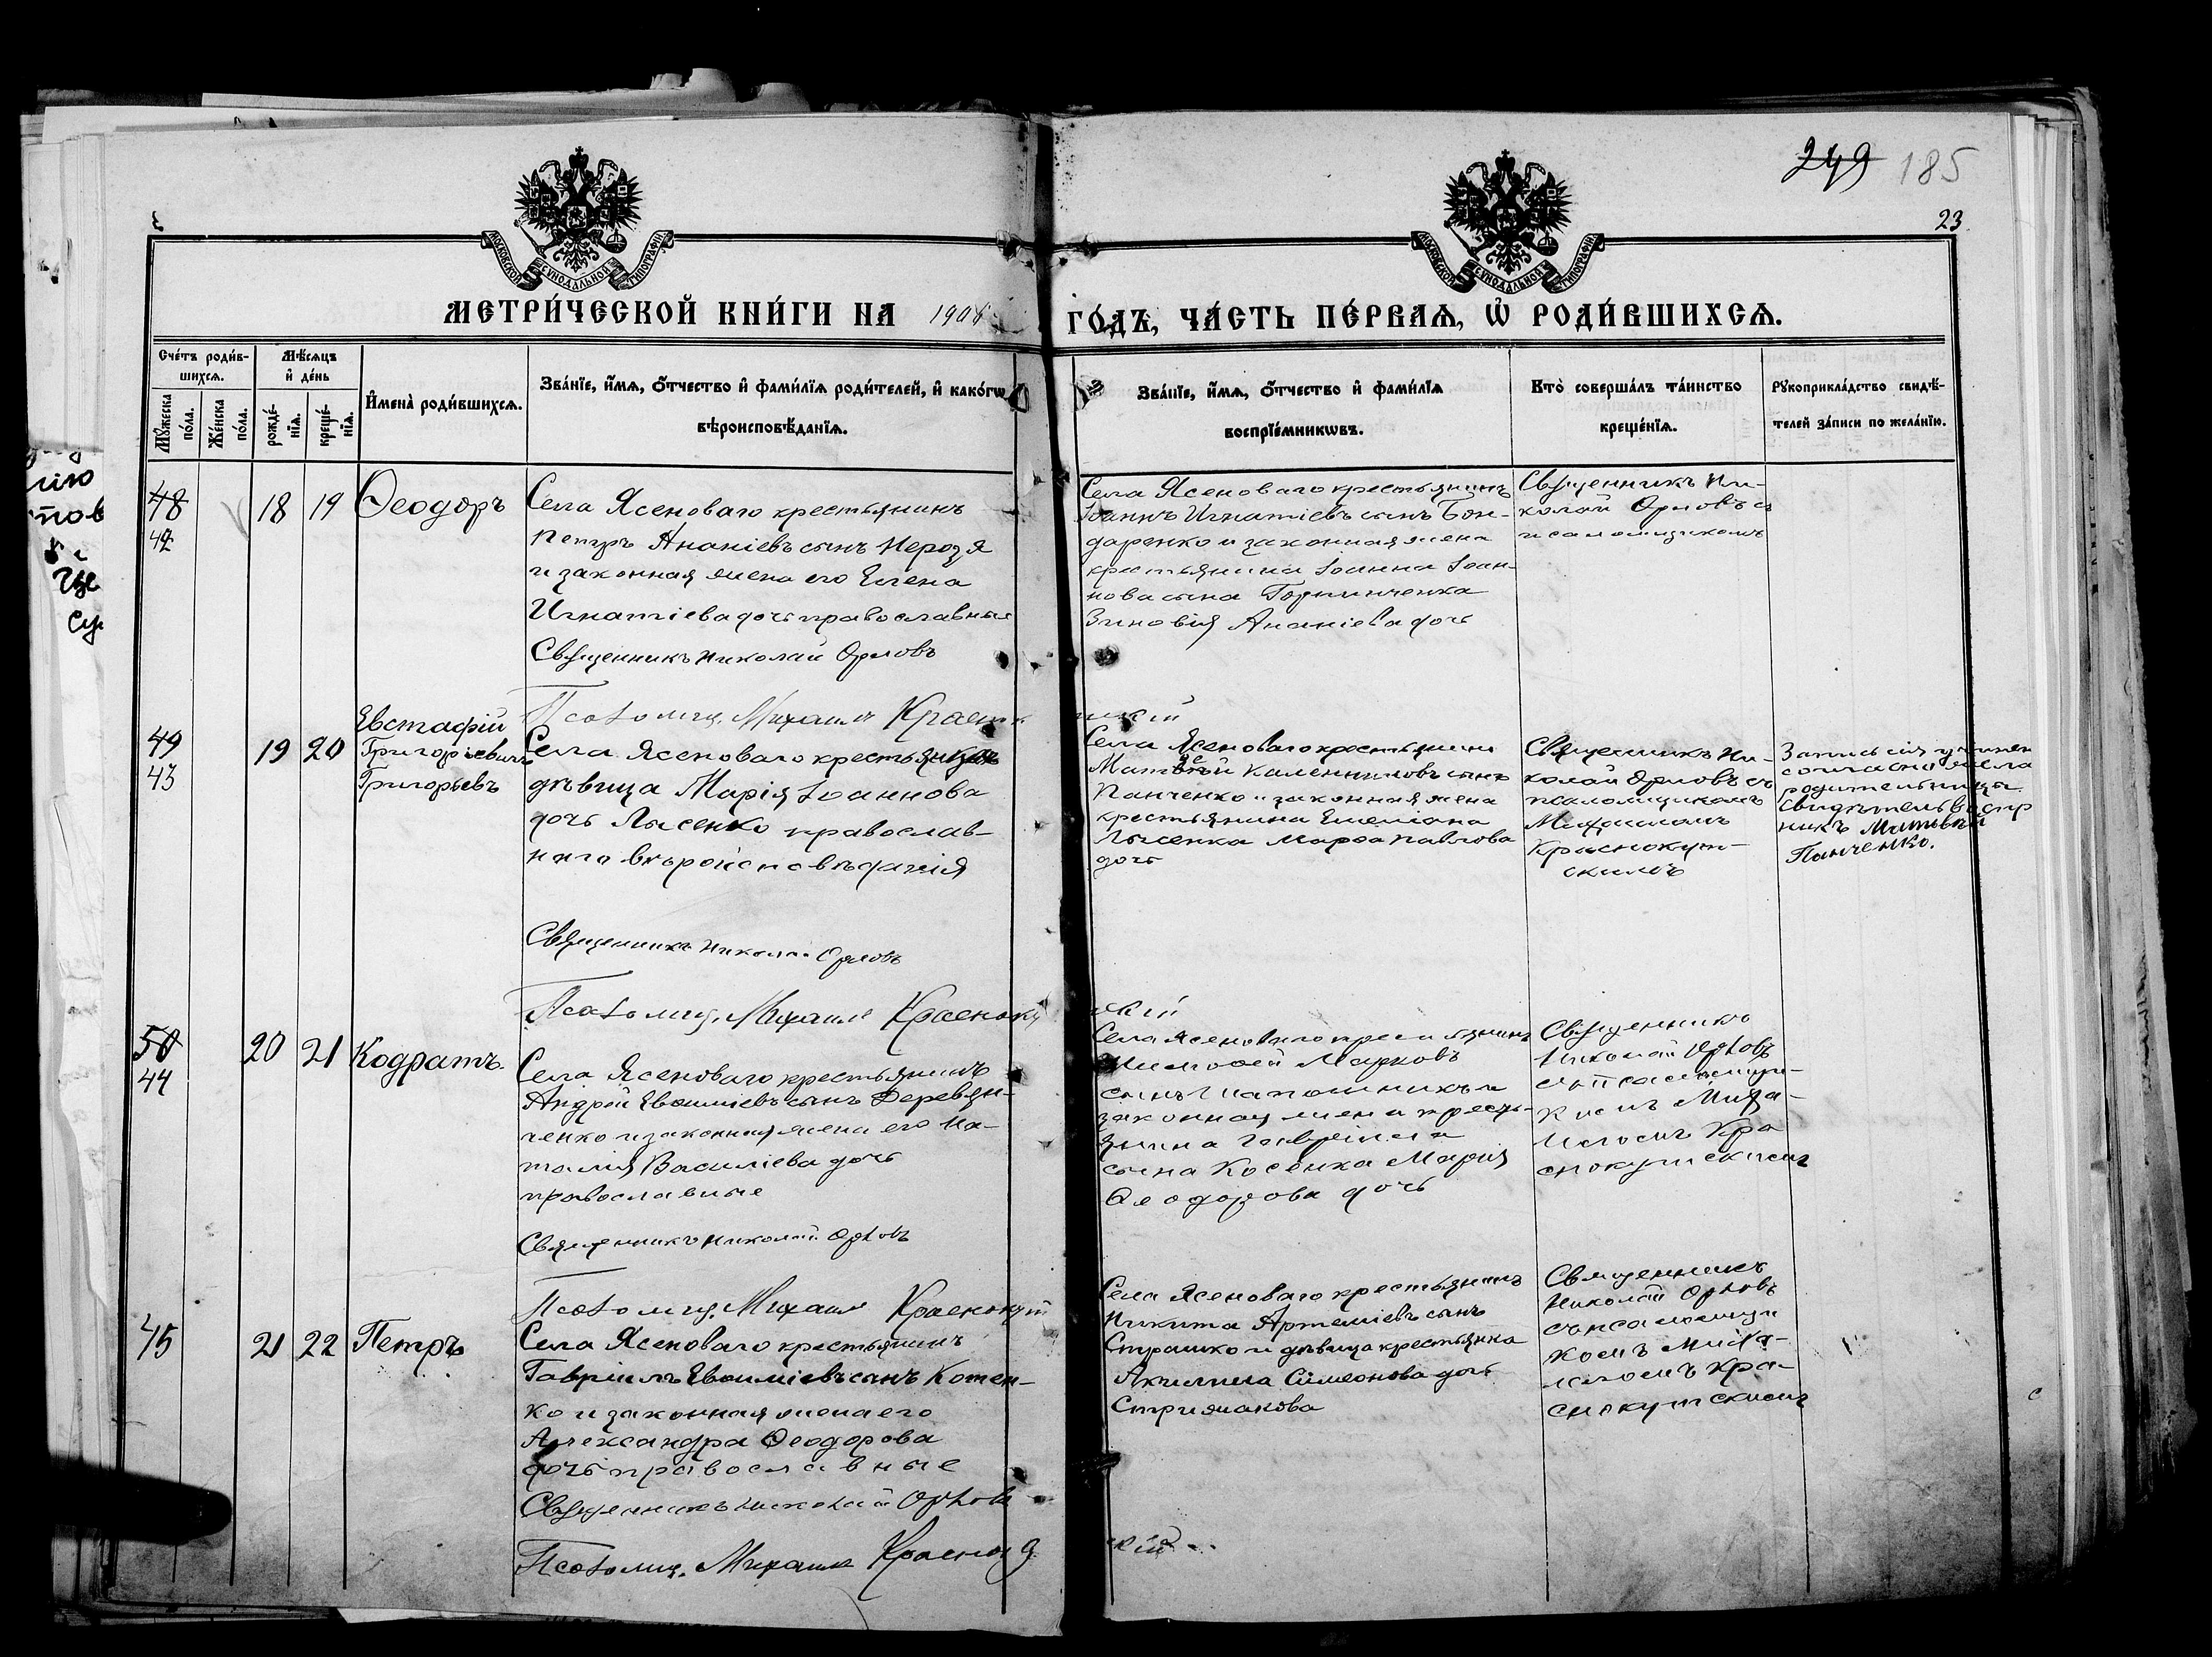 249 185
23
МОСКОВСКОЙ СѴНОДАЛЬНОЙ ТИПОГРАФІИ
МОСКОВСКОЙ СѴНОДАЛЬНОЙ ТИПОГРАФІИ
МЕТРИ́ЧЕСКОЙ КНИ́ГИ НА 1908
ГО́ДЪ, ЧА́СТЬ ПЕ́РВАѦ, Ѡ РОДИ́ВШИХСѦ.
Сче́тъ роди́в-
шихсѧ.
Мꙋ́жеска по́ла.
Же́нска по́ла.
Мѣ́сѧцъ
и҆ де́нь
рожде́-
нїѧ.
креще́-
нїѧ.
И҆мена̀ роди́вшихсѧ.
Зва́нїе, и҆́мѧ, ѻ҆́тчество и҆ фами́лїѧ роди́телей, и҆ како́гѡ
вѣроисповѣ́данїѧ.
Зва́нїе, и҆́мѧ, ѻ҆́тчество и҆ фами́лїѧ
воспрїе́мникѡвъ.
Кто̀ соверша́лъ та́инство
креще́нїѧ.
Рꙋкоприкла́дство свидѣ́-
телей за́писи по жела́нїю.
48
42
18 19 Ѳеодоръ
Села Ясеноваго крестьянинъ
Петръ Ананіевъ сынъ Нерозя
и законная жена его Елена
Игнатіева дочь православныя
Священникъ Николай Орловъ
Псаломщ. Михаилъ Краснокут
Села Ясеноваго крестьянинъ
Іоаннъ Игнатіевъ сынъ Бон-
даренко и законная жена
крестьянина Іоанна Іоан-
нова сына
Зиновія Ананіева дочь
Священникъ Ни-
колай Орловъ съ
псаломщикомъ
49
43
19 20
Евстафій
Григорьевичъ
Григорьевъ
Села Ясеноваго крестьянка
дѣвица Марія Іоаннова
дочь Лысенко православ-
наго вѣроисповѣданія
Священникъ Николай Орловъ
Псаломщ. Михаилъ Краснокут
скій
Села Ясеноваго крестьянинъ
Матвѣй Каленниковъ сынъ
Панченко и законная жена
крестьянина Емеліана
Лысенка Марѳа Павлова
дочь
Священникъ Ни-
колай Орловъ съ
псаломщикомъ
Михаиломъ
Краснокут-
скимъ
Запись сія учинен
согласно жела
родительницы
Свидѣтель воспр
никъ Матвѣй
Панченко.
50
44
20 21 Кодратъ.
Села Ясеноваго крестьянинъ
Андрей Евѳиміевъ сынъ Деревян-
ченко и законная жена его На-
талія Василіева дочь
православные
Священникъ Николай Орловъ
Псаломщ. Михаилъ Краснокут
скій
Села Ясеноваго крестьянинъ
Тимоѳей Марковъ
сынъ Шапошникъ и
законная жена кресть-
янина Гавріила
сына Косенка Марія
Ѳеодорова дочь
Священникъ
Николай Орловъ
съ псаломщи-
комъ Миха-
иломъ Кра
снокутскимъ
45
21 22 Петръ
Села Ясеноваго крестьянинъ
Гавріилъ Евѳиміевъ сынъ Котен-
ко и законная жена его
Александра Ѳеодорова
дочь православные
Священникъ Николай Орловъ
Псаломщ. Михаилъ Краснокут
скій
Села Ясеноваго крестьянинъ
Никита Артеміевъ сынъ
Страшко и дѣвица крестьянка
Акилина Симеонова дочь
Стрижакова
Священникъ
Николай Орловъ
съ псаломщи
комъ Миха-
иломъ Кра-
снокутскимъ